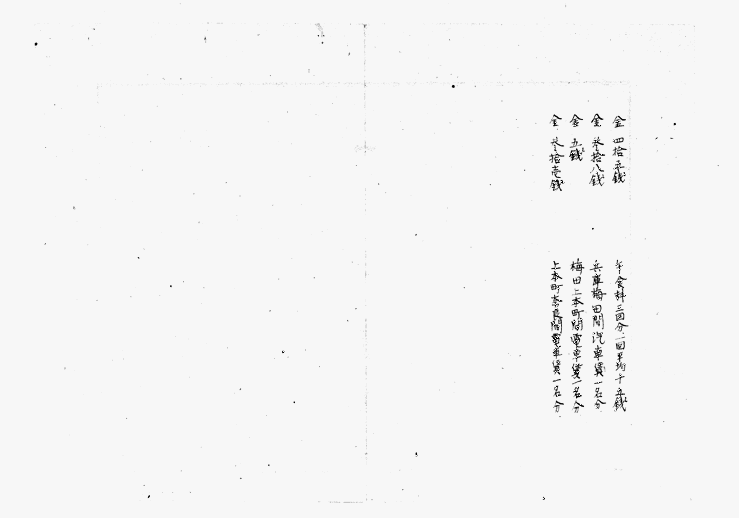 金四拾五銭 午食料三回分一回平均十五銭
金参拾八銭 兵庫梅田間汽車賃一名分
金五銭 梅田上本町間電車賃一名分
金参拾壱銭 上本町奈良間電車賃一名分